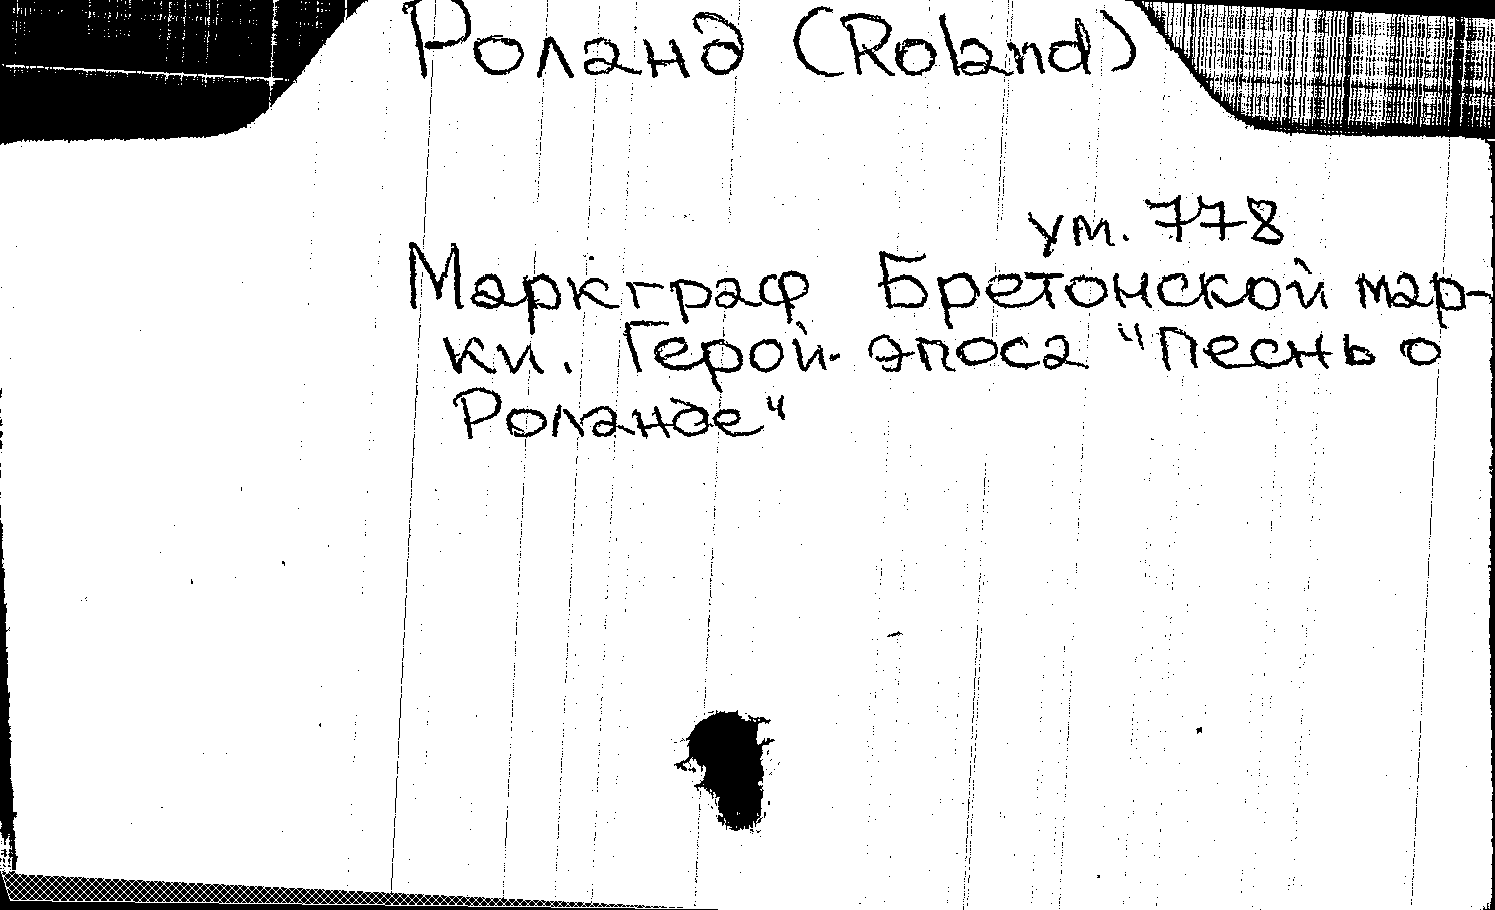 Роланд (Roland)
ум. 778
Маркграф Бретонской мар-
ки. Герой эпоса "Песнь о
Роланде"